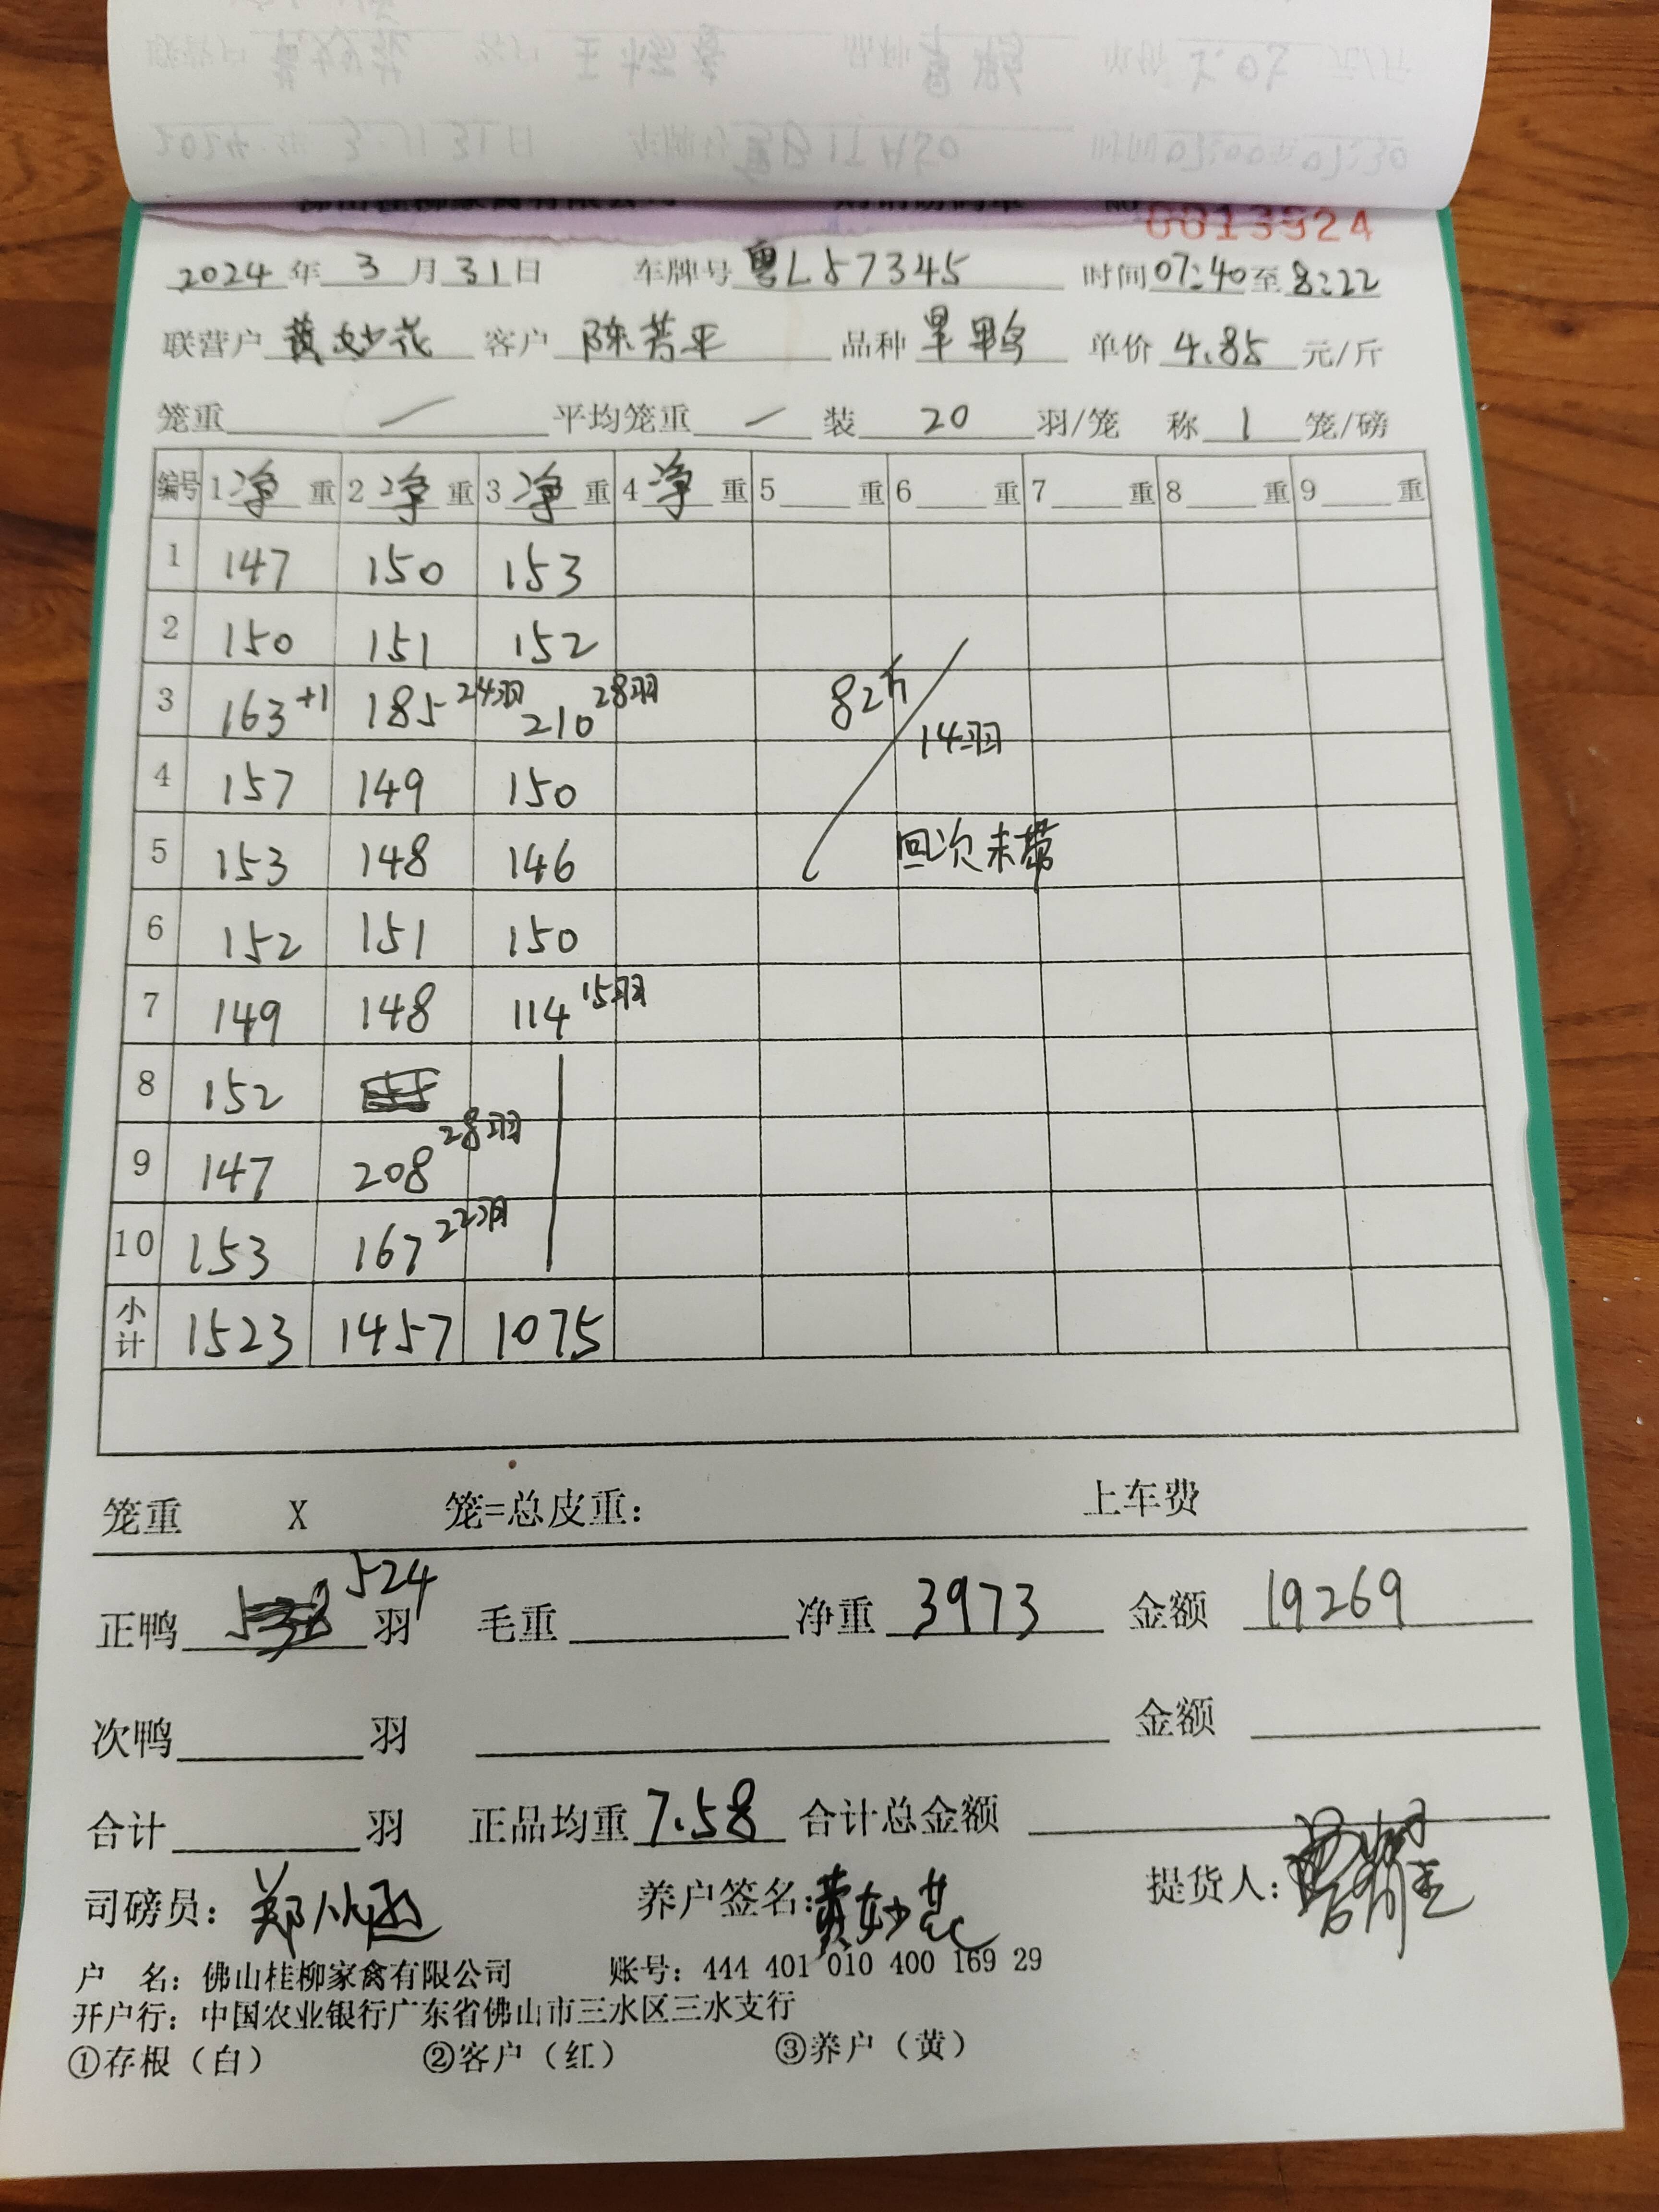 0013924
2024 年 3 月 31 日 车牌号 粤L57345 时间 07:40 至 8:22
联营户 黄妙花 客户 陈芳平 品种 旱鸭 单价 4.85 元/斤
笼重 平均笼重 装 20 羽/笼 称 1 笼/磅
编号 1 净 重 2 净 重 3 净 重 4 净 重 5 重 6 重 7 重 8 重 9 重
1 147 150 153
2 150 151 152
3 163+1 185 24羽 210 28羽 82斤 / 14羽
4 157 149 150
5 153 148 146 回次未带
6 152 151 150
7 149 148 114 15羽
8 152
9 147 208 28羽
10 153 167 22羽
小计 1523 1457 1075
笼重 X 笼=总皮重： 上车费
正鸭 524 羽 毛重 净重 3973 金额 19269
次鸭 羽 金额
合计 羽 正品均重 7.58 合计总金额
司磅员： 郑 养户签名： 黄妙花 提货人：
户 名：佛山桂柳家禽有限公司 账号：444 401 010 400 169 29
开户行：中国农业银行广东省佛山市三水区三水支行
①存根（白） ②客户（红） ③养户（黄）